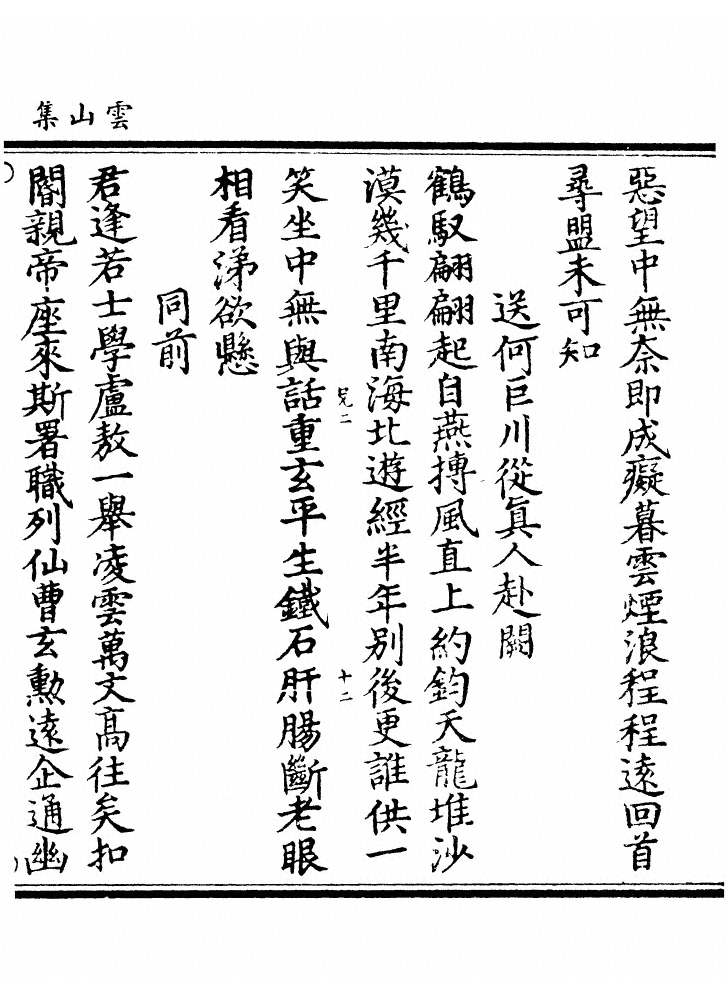 雲山集
惡望中無奈即成癡暮雲煙浪程程遠回首
尋盟未可知
送何巨川從眞人赴闕
鶴馭翩翩起自燕摶風直上約鈞天龍堆沙
漠幾千里南海北遊經半年別後更誰供一
兄二
十二
笑坐中無與話重玄平生鐵石肝腸斷老眼
相看涕欲懸
同前
君逢若士學盧敖一舉凌雲萬丈髙往矣扣
閽親帝座來斯署職列仙曹玄勳遠企通幽